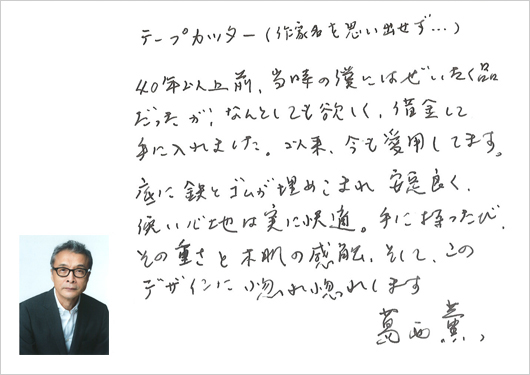 テープカッター(作家名を思い出せず…)
40年以上前、当時の僕にはぜいたく品
だったが、なんとしても欲しく、借金して
手に入れました。以来、今も愛用してます。
底に鉄とゴムが埋めこまれ 安定良く、
使い心地は実に快適。手に持つたび、
その重さと木肌の感触、そして、この
デザインに惚れ惚れします
葛西薫